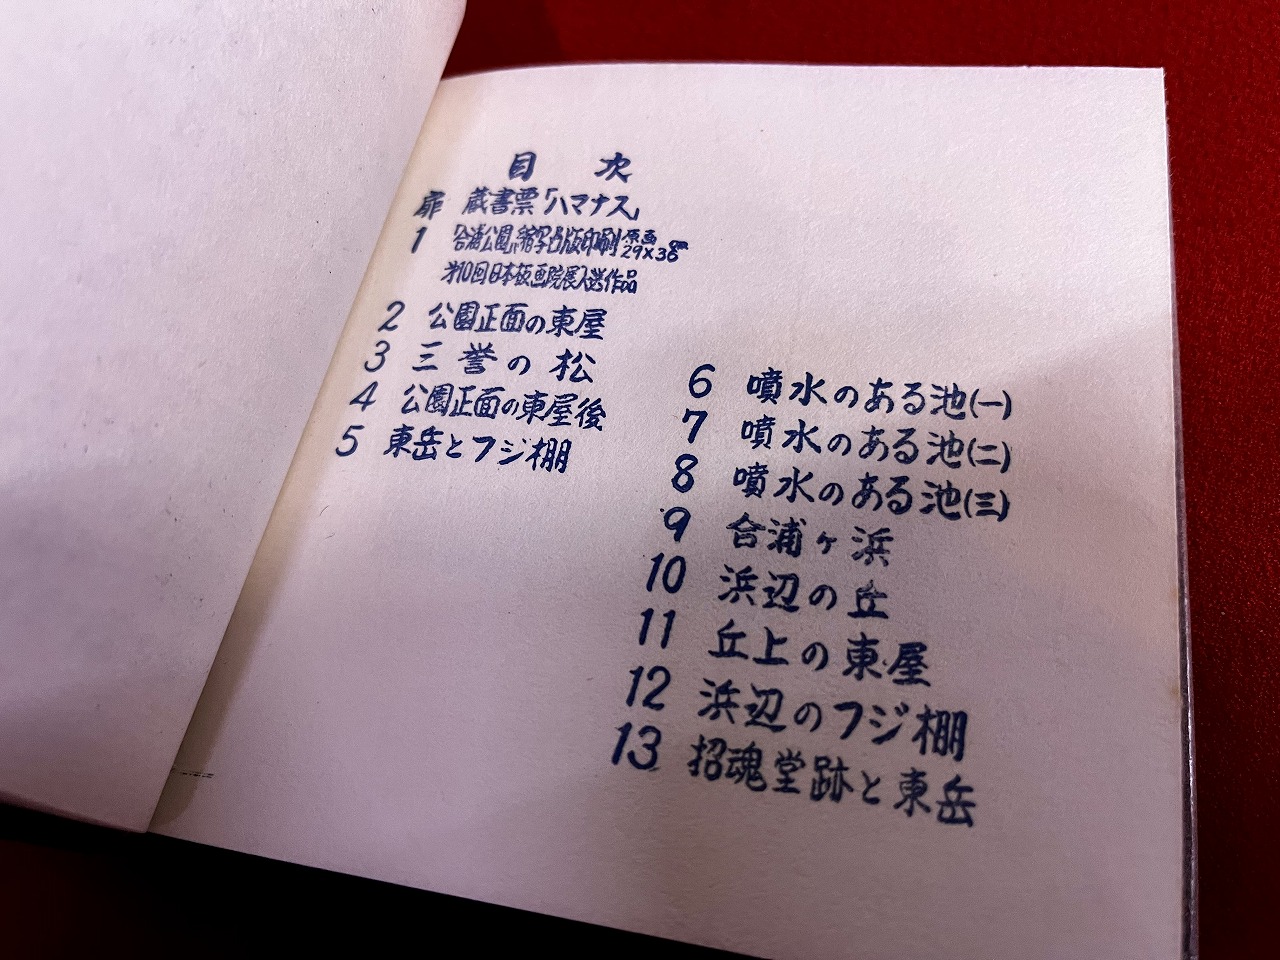 目次
扉 蔵書票「ハマナス」
1 「合浦公園」縮写凸版印刷 原画 29×36㎝
才10回日本板画院展入選作品
2 公園正面の東屋
3 三誉の松
4 公園正面の東屋後
5 東岳とフジ棚
6 噴水のある池(一)
7 噴水のある池(二)
8 噴水のある池(三)
9 合浦ヶ浜
10 浜辺の丘
11 丘上の東屋
12 浜辺のフジ棚
13 招魂堂跡と東岳